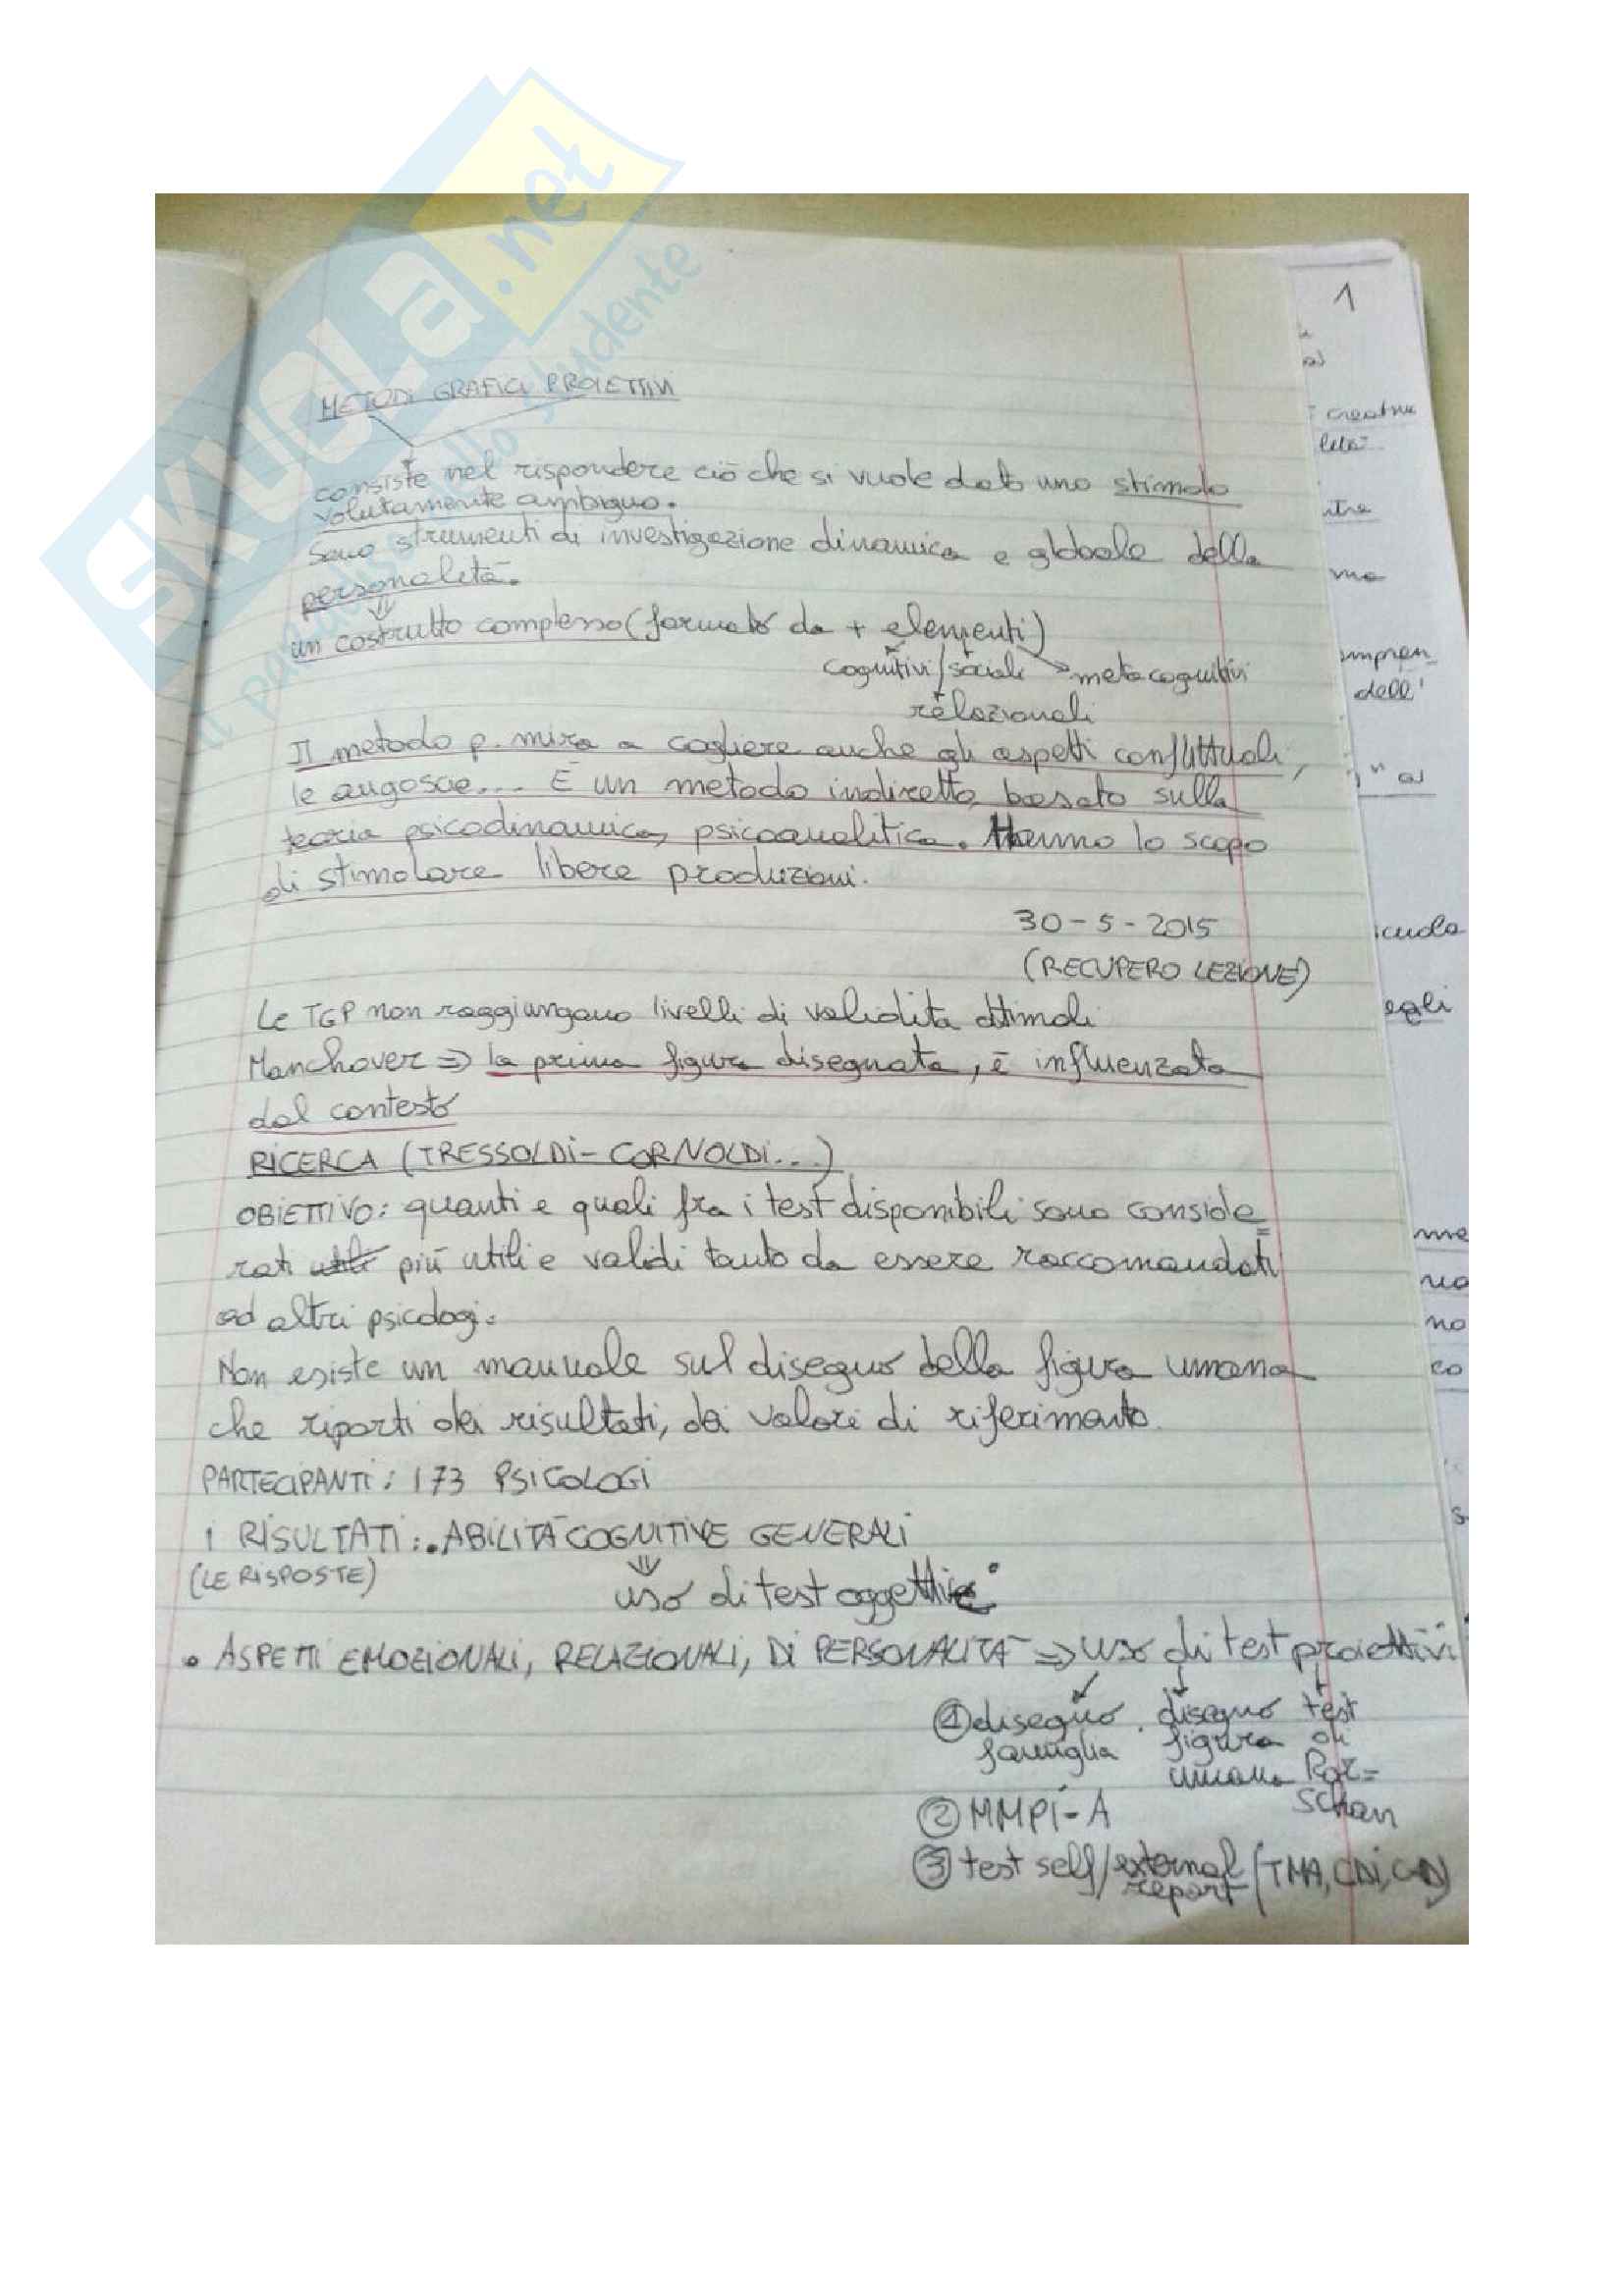 SKUOLA.net
il paradiso dello studente
1
METODI GRAFICI PROIETTIVI
consiste nel rispondere ciò che si vuole dato uno stimolo
volutamente ambiguo.
Sono strumenti di investigazione dinamica e globale della
personalità.
un costrutto complesso (formato da + elementi)
cognitivi/sociali → metacognitivi
relazionali
Il metodo p. mira a cogliere anche gli aspetti conflittuali,
le angosce... È un metodo indiretto, basato sulla
teoria psicodinamica, psicoanalitica. Hanno lo scopo
di stimolare libere produzioni.
30-5-2015
(RECUPERO LEZIONE)
Le TGP non raggiungano livelli di validità ottimali
Manchover => la prima figura disegnata, è influenzata
dal contesto
RICERCA (TRESSOLDI-CORNOLDI...)
OBIETTIVO: quanti e quali fra i test disponibili sono conside=
rati utili più utili e validi tanto da essere raccomandati
ad altri psicologi.
Non esiste un manuale sul disegno della figura umana
che riporti dei risultati, dei valori di riferimento.
PARTECIPANTI: 173 PSICOLOGI
I RISULTATI: • ABILITÀ COGNITIVE GENERALI
(LE RISPOSTE)
uso di test oggettivi
• ASPETTI EMOZIONALI, RELAZIONALI, DI PERSONALITÀ => uso di test proiettivi
① disegno disegno test
famiglia figura di
umana Ror=
schan
② MMPI-A
③ test self/external (TMA, CDI,
report
creative
dell'
scuola
egli
me
na
no
co